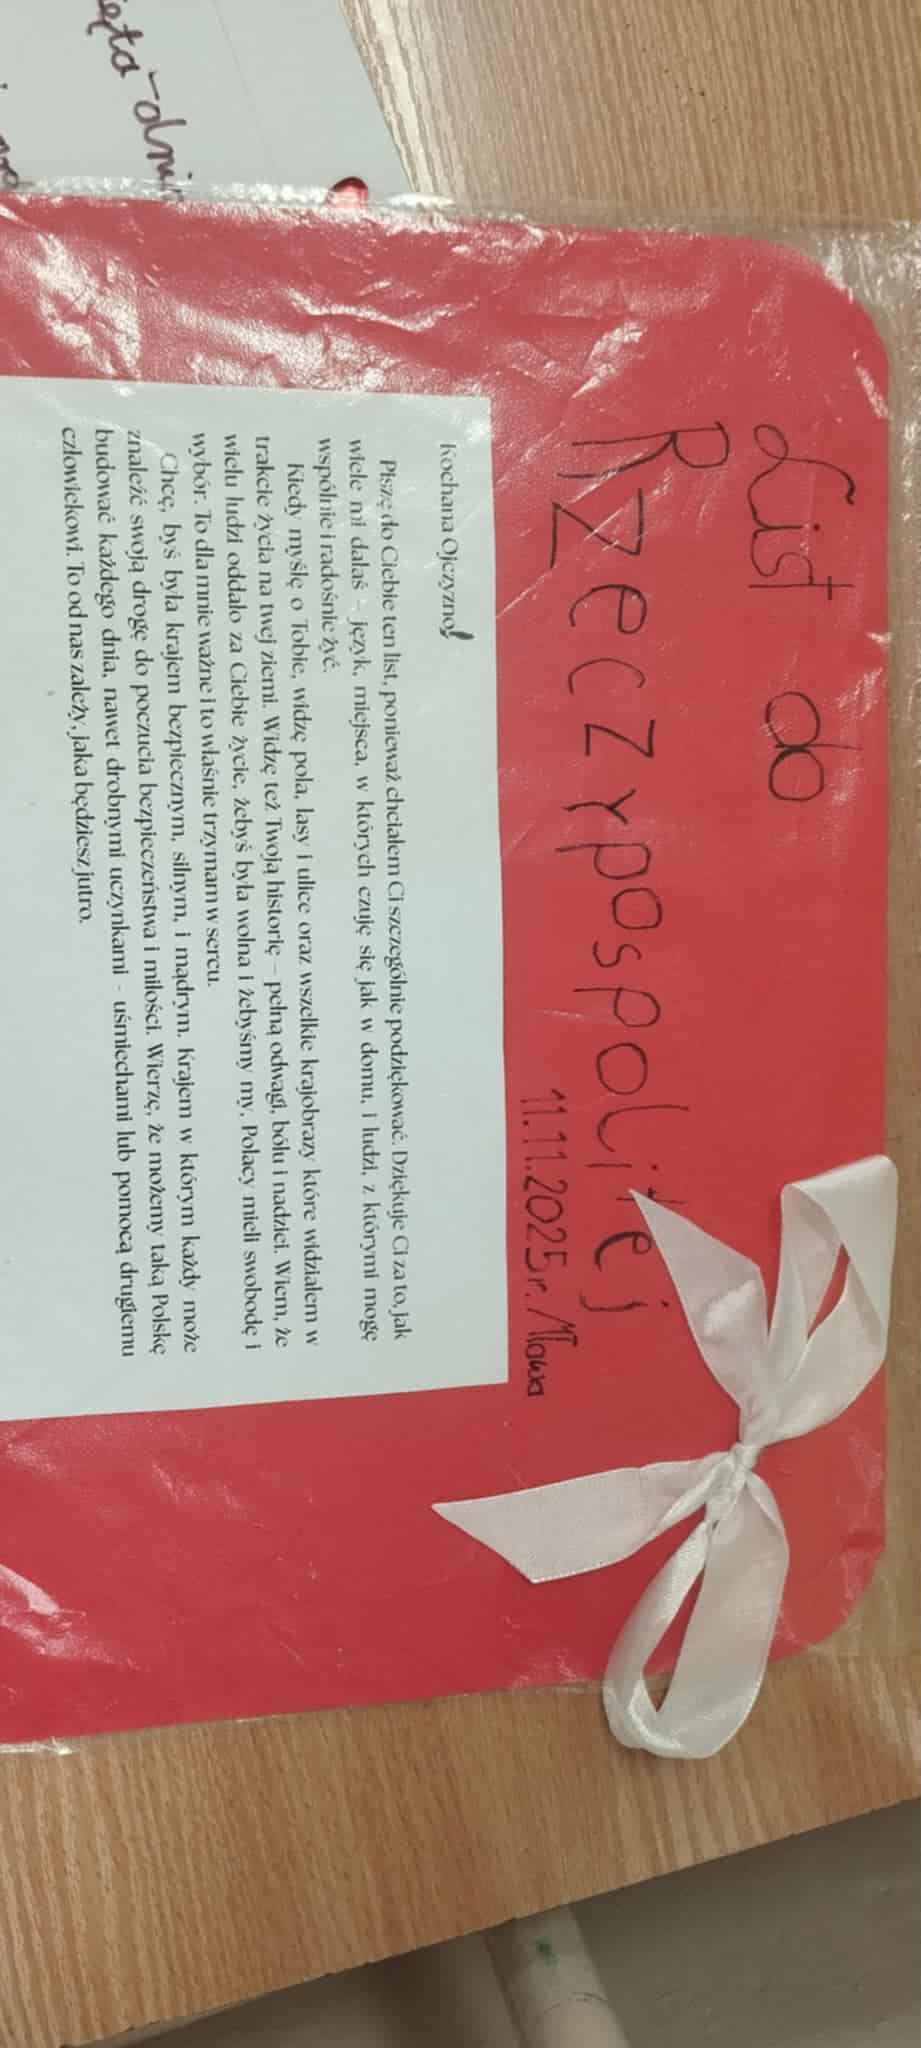 List do
Rzeczypospolitej
11.11.2025r. Mława
Kochana Ojczyzno!
Piszę do Ciebie ten list, ponieważ chciałem Ci szczególnie podziękować. Dziękuje Ci za to, jak
wiele mi dałaś – język, miejsca, w których czuję się jak w domu, i ludzi, z którymi mogę
wspólnie i radośnie żyć.
Kiedy myślę o Tobie, widzę pola, lasy i ulice oraz wszelkie krajobrazy które widziałem w
trakcie życia na twej ziemi. Widzę też Twoją historię – pełną odwagi, bólu i nadziei. Wiem, że
wielu ludzi oddało za Ciebie życie, żebyś była wolna i żebyśmy my, Polacy mieli swobodę i
wybór. To dla mnie ważne i to właśnie trzymam w sercu.
Chcę, byś była krajem bezpiecznym, silnym, i mądrym. Krajem w którym każdy może
znaleźć swoją drogę do poczucia bezpieczeństwa i miłości. Wierzę, że możemy taką Polskę
budować każdego dnia, nawet drobnymi uczynkami – uśmiechami lub pomocą drugiemu
człowiekowi. To od nas zależy, jaka będziesz jutro.